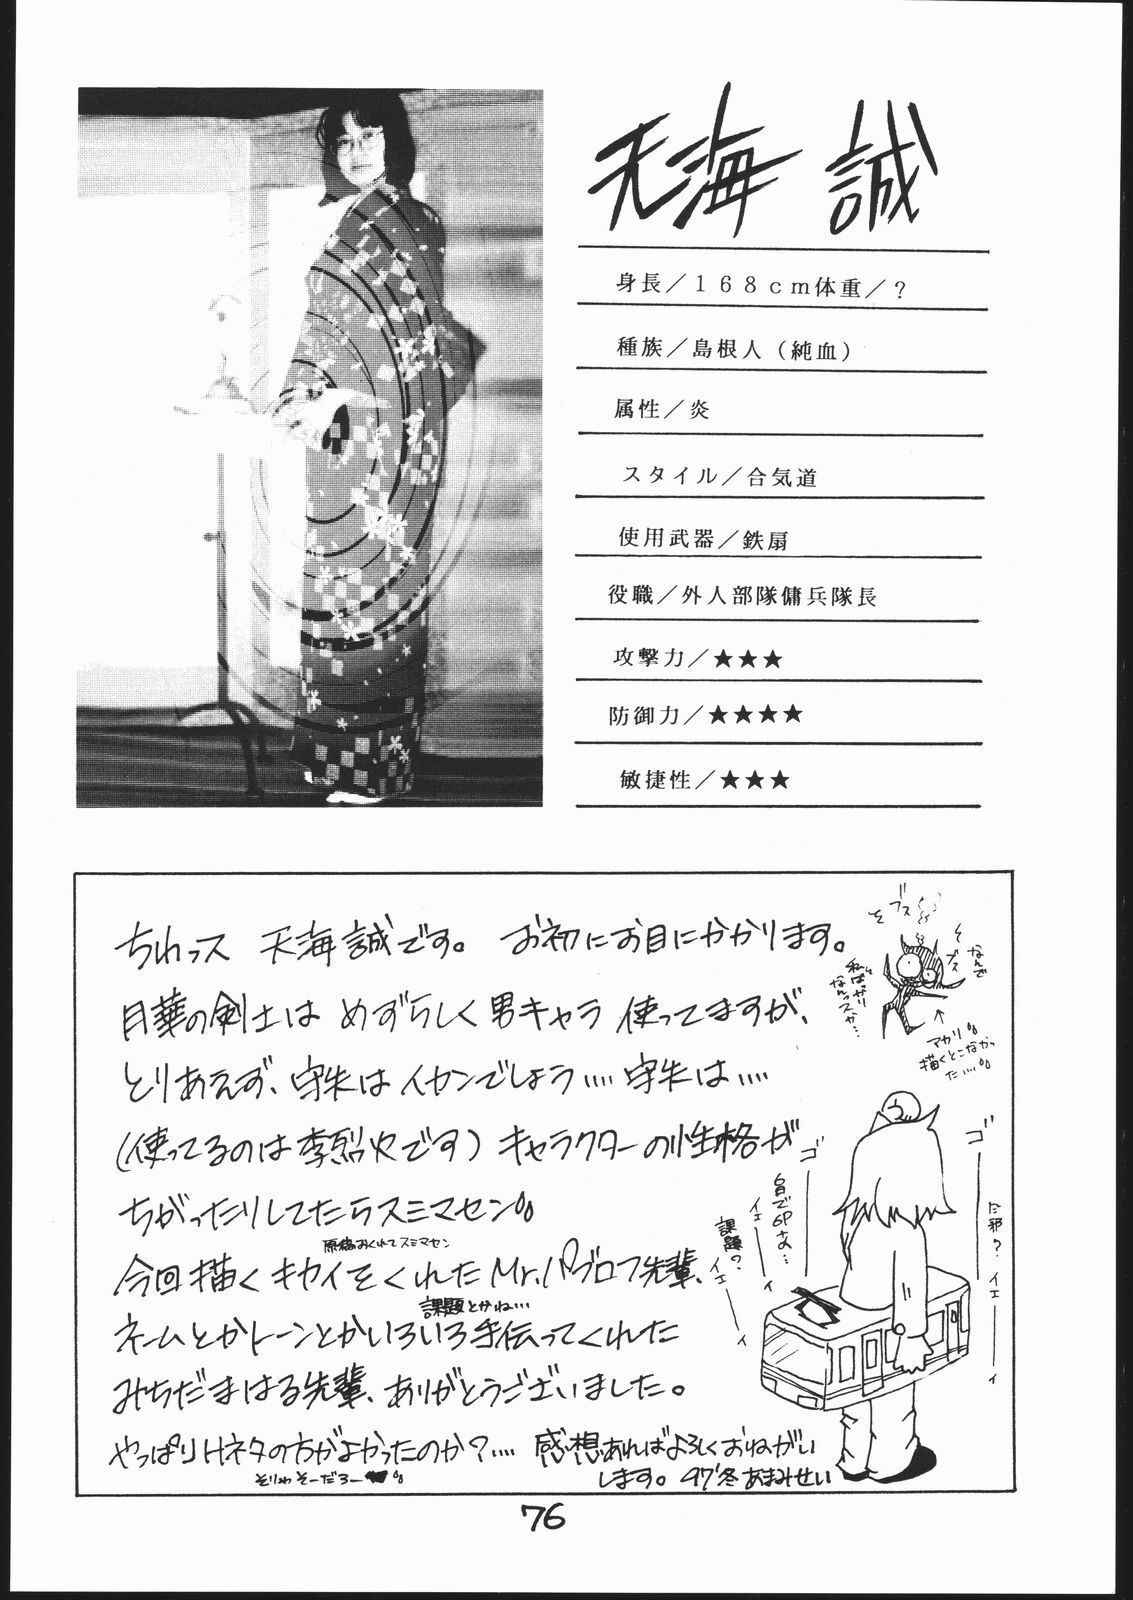 天海 誠
身長／168cm体重／？
種族／島根人（純血）
属性／炎
スタイル／合気道
使用武器／鉄扇
役職／外人部隊傭兵隊長
攻撃力／★★★
防御力／★★★★
敏捷性／★★★
ちわっス 天海誠です。 お初にお目にかかります。
月華の剣士は めずらしく男キャラ 使ってますが、
とりあえず、守矢はイカンでしょう‥‥守矢は‥‥
（使ってるのは李烈火です）キャラクターの性格が
ちがったりしてたらスミマセン。
原稿おくれてスミマセン
今回描くキカイをくれたMr.パブロフ先輩、
課題とかね…
ネームとかトーンとかいろいろ手伝ってくれた
みちだまはる先輩、ありがとうございました。
やっぱりHネタの方がよかったのか?‥‥
そりゃそーだろー
感想あればよろしくおねがい
します。 97'冬 あまみせい
ブス
ブス
なんで
私ばっかり
なんスか…
アカリ
描くとこなかっ
た‥‥
ゴ
ゴ
課題？
イエ
イエ
イエ
76